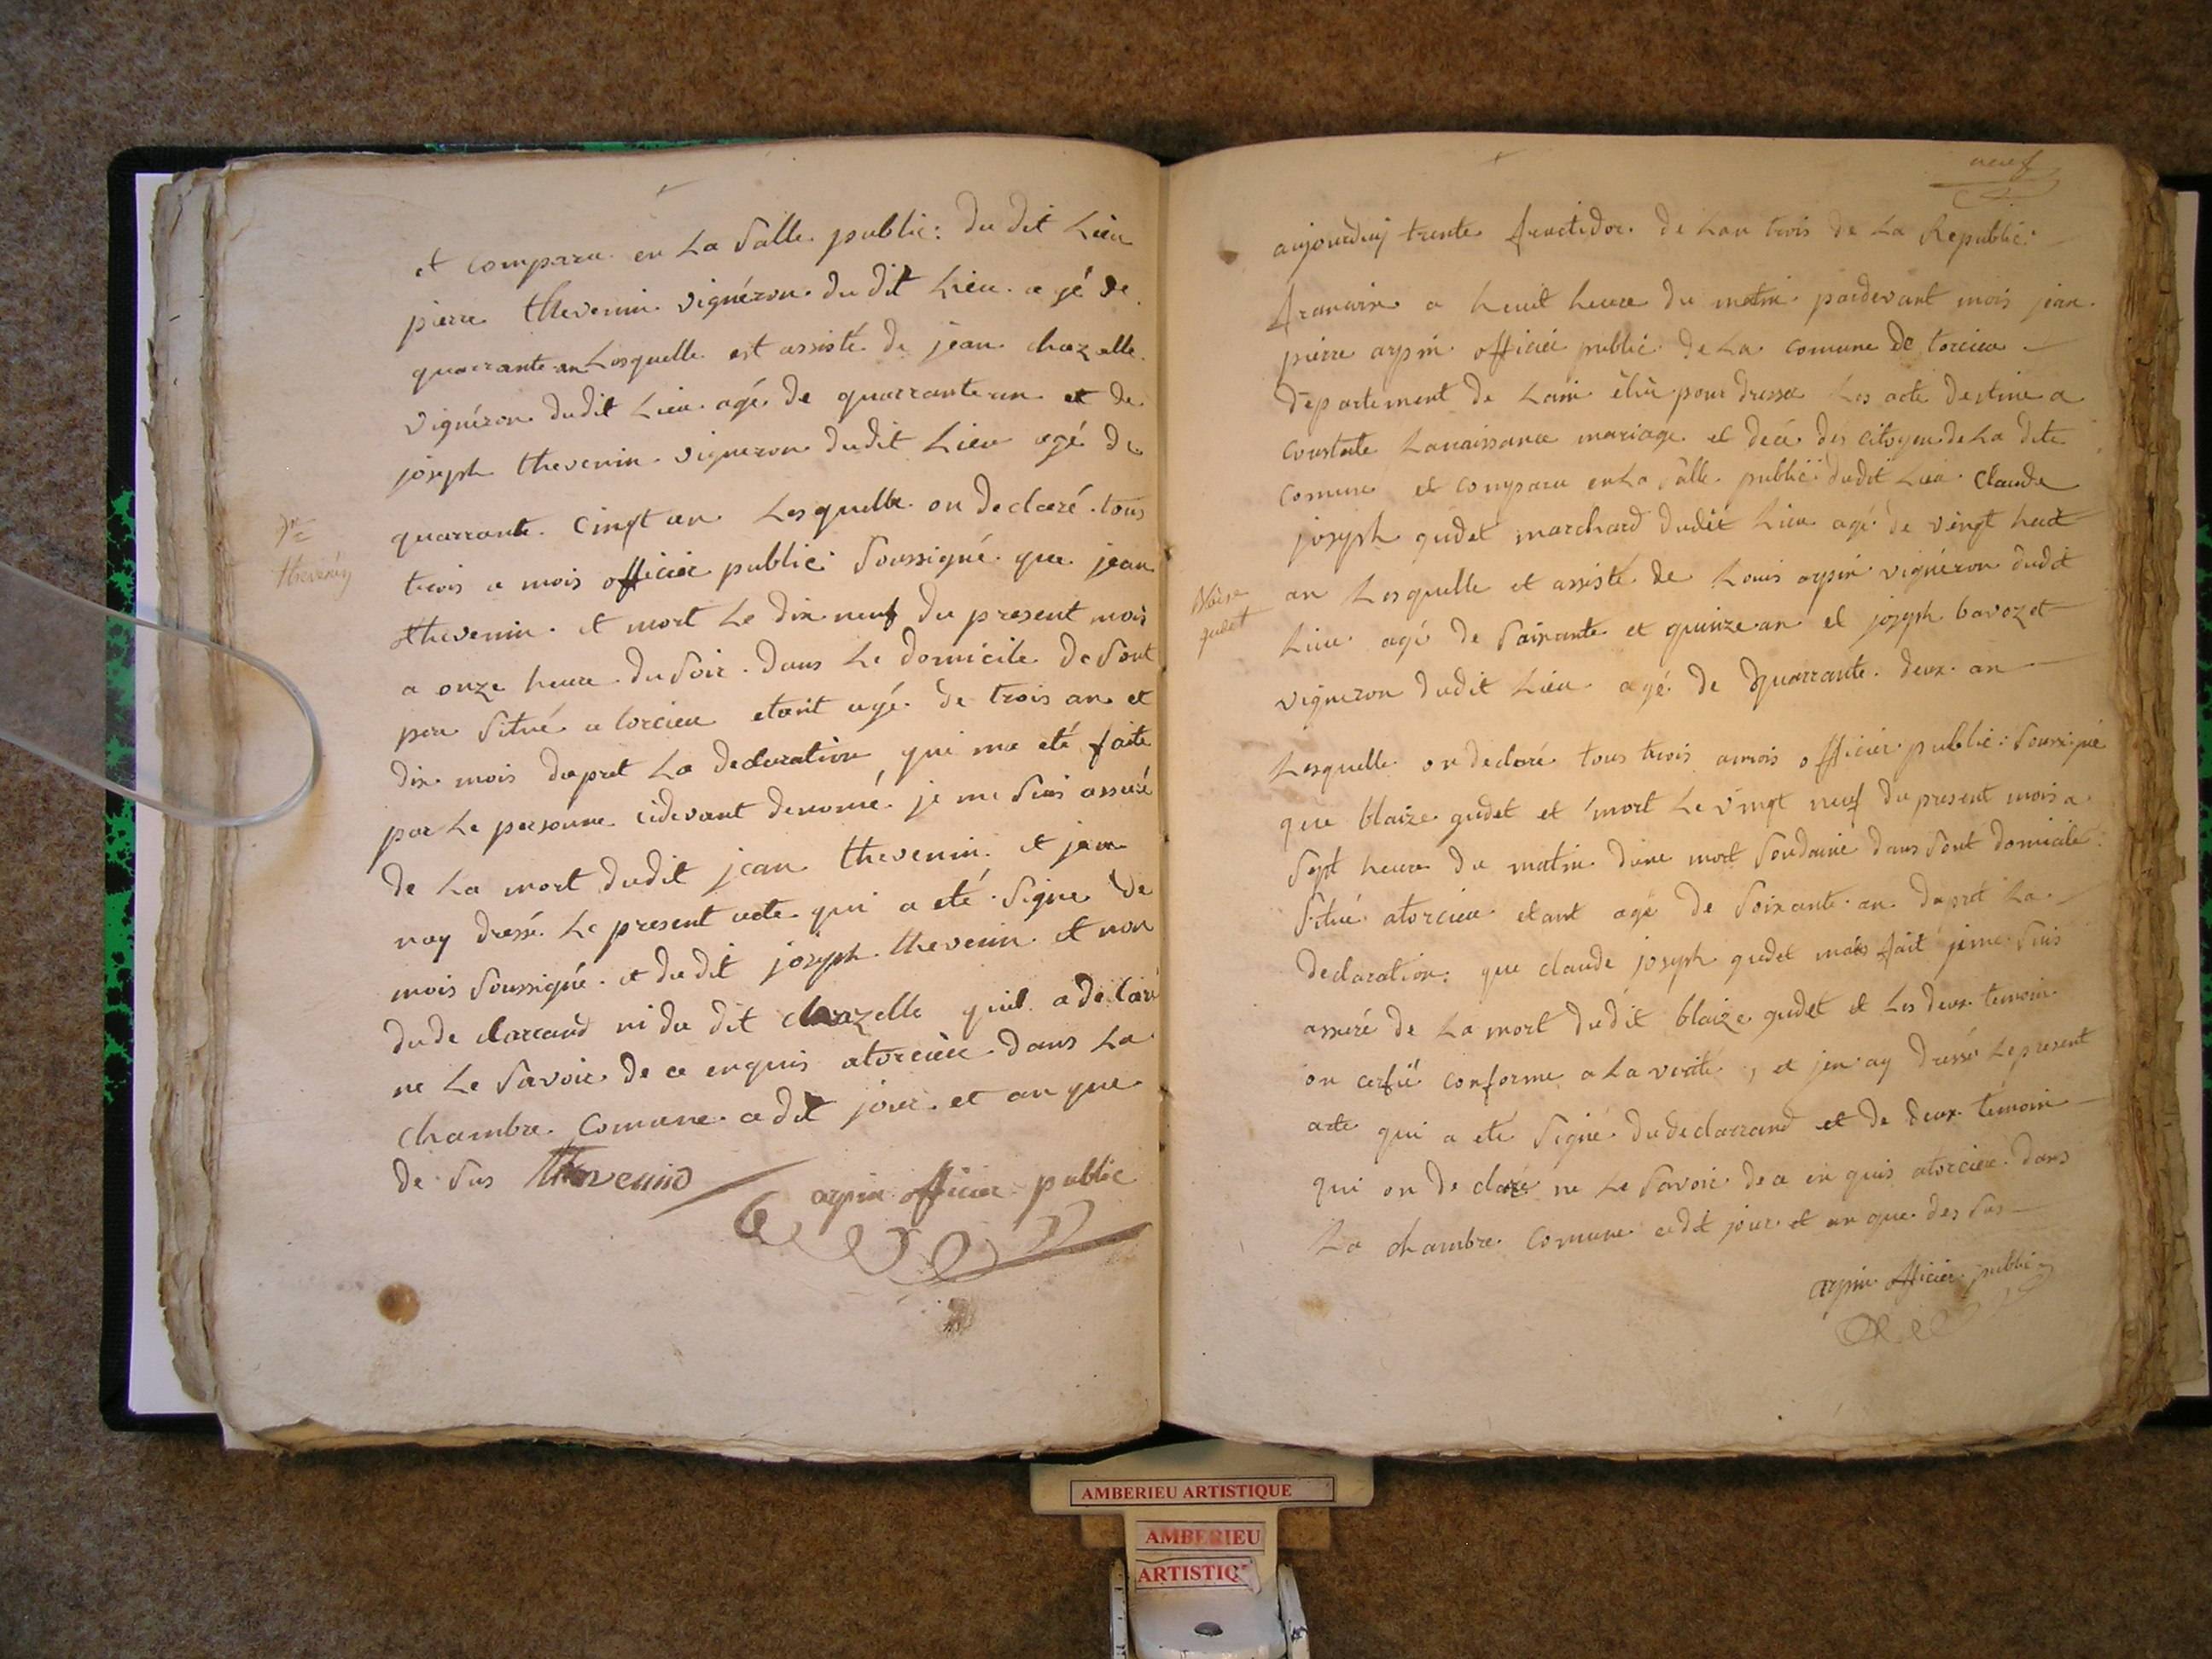 et comparu en La Salle public: du dit Lieu
pierre thevenin vignéron du dit Lieu a gé de
quarrante an Losquelle est assisté de jean chazelle
vignéron dudit Lieu agé de quarrante un et de
joseph thevenin vigneron dudit Lieu agé de
quarrante cinqt an Lesquelle on declaré tous
trois a mois officier public Soussigné que jean
thevenin et mort Le dix neuf du present mois
a onze heure du Soir dans Le domicile de Sont
pere Situé a torcieu etant agé de trois an et
dix mois dapret La declaration qui ma eté faite
par Le personne cidevant denomé je me Suis assuré
de La mort dudit jean thevenin et jean
nay dressé Le present acte qui a eté Signe de
mois Soussigné et du dit joseph thevenin et non
dude clarrand ni du dit chazelle quil a declaré
ne Le Savoir de ce enquis atorcieu dans La
chambre Comune cedit jour et an que
de Sus Thevenin
arpin officier public
thevenin
neuf
aujourduy trente fructidor de Lan trois de La Republic
francoise a heuit heure du matin pardevant mois jean
pierre arpin officier public de La comune de torcieu
département de Lain élu pour dresser Les acte destine a
constate Lanaissance mariage et décé des citoyen de La dite
Comune et comparu en La Salle public dudit Lieu Claude
joseph gudet marchand dudit Lieu agé de vingt heuit
an Lesquelle et assisté de Louis arpin vignéron dudit
Lieu agé de Soixante et quinze an et joseph bavozet
vigneron dudit Lieu agé de quarrante deux an
Lesquelle on declaré tous trois amois officier public Soussigné
que blaize gudet et mort Le vingt neuf du present mois a
Sept heure du matin dune mort Soudaine dans Sont domicile
Situé atorcieu etant agé de Soixante an dapret La
declaration que claude joseph gudet mais fait jeme Suis
assuré de La mort dudit blaize gudet et Les deux temoin
on certié conforme a La verité, et jen ay dressé Le present
acte qui a eté Signé dudeclarrand et de deux témoin
qui on de claré ne Le Savoir de ce en quis atorcieu dans
La chambre Comune cedit jour et an que des Sus
arpin officier public
blaise
gudet
AMBERIEU ARTISTIQUE
AMBERIEU
ARTISTIQ